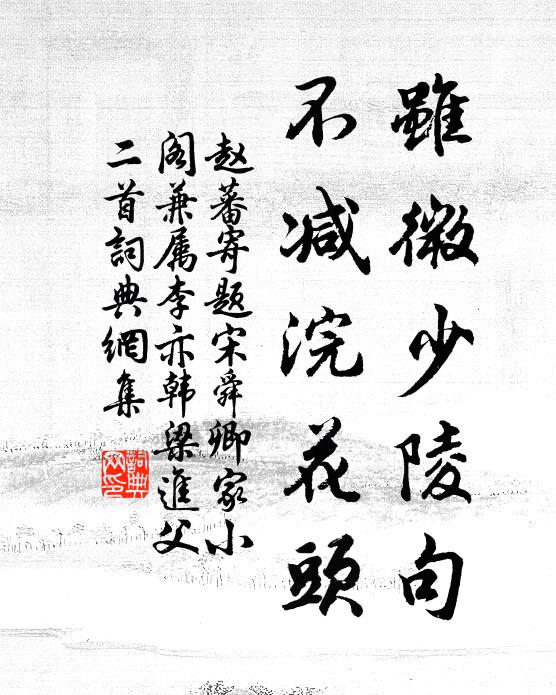 雖微少陵句
不减浣花頭
赵蕃寄题宋舜卿家小
阁兼属李亦韩梁進父
二首詞典網集